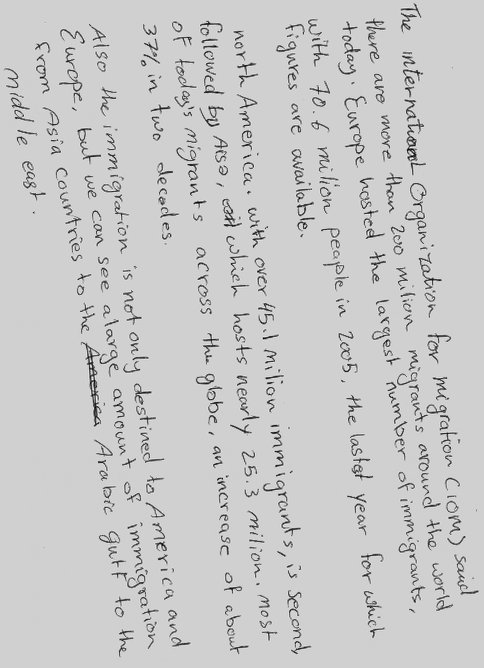 The international Organization for migration (IOM) said
there are more than 200 milion migrants around the world
today. Europe hosted the largest number of immigrants,
with 70.6 milion people in 2005, the lastest year for which
figures are available.
north America. with over 45.1 milion immigrants, is second,
followed by Aisa, which hosts nearly 25.3 milion. most
of today's migrants across the globe, an increase of about
37% in two decades.
Also the immigration is not only destined to America and
Europe, but we can see a large amount of immigration
from Asia countries to the Arabic gulf to the
middle east.